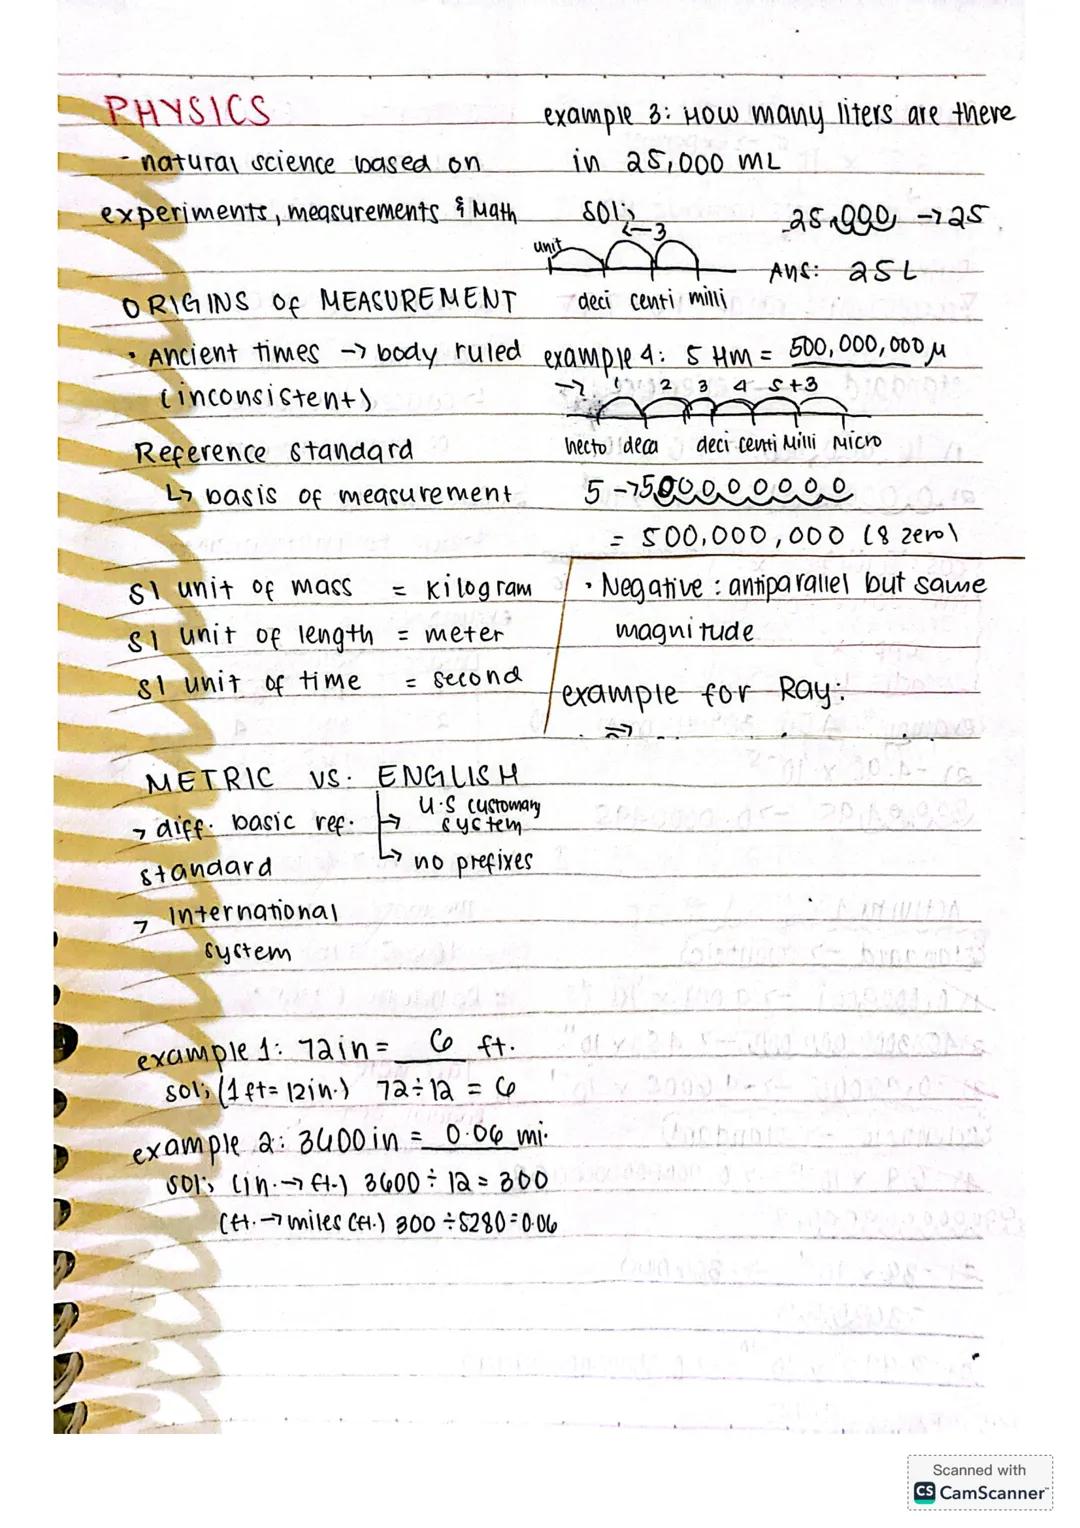 PHYSICS
- natural science based on
experiments, measurements & Math
ORIGINS of MEASUREMENT
• Ancient times → body ruled
(inconsistent)
Reference standard
↳ basis of measurement
SI unit of mass = kilogram
SI unit of length = meter
SI unit of time = second
METRIC vs. ENGLISH
→ diff. basic ref.
standard
→ International
system
→ U.S customary
system
→ no prefixes
example 1: 72in = 6 ft.
sol; (1 ft = 12in.) 72÷12 = 6
example 2: 3600in = 0.06 mi.
sol; (in. → ft.) 3600 ÷ 12 = 300
(ft. → miles (ft.) 300 ÷ 5280 = 0.06
example 3: How many liters are there
in 25,000 mL
sol; 25,000, → 25
← 3
unit
deci centi milli
Ans: 25 L
example 4: 5 Hm = 500,000,000 μ
→ 1 2 3 4 5 + 3
hecto deca deci centi Milli Micro
5 → 500000000
= 500,000,000 (8 zero)
• Negative : antiparallel but same
magnitude
example for Ray:
Scanned with
CS CamScanner